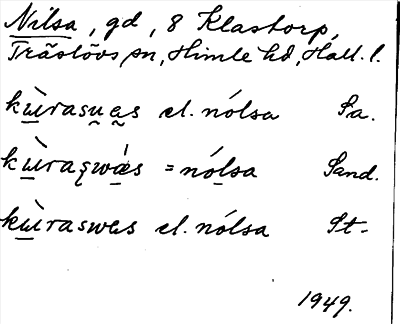 Nilsa, gd, 8 Klastorp,
Träslövs sn, Himle hd, Hall. l.
kùrasuas el. nólsa Sa.
kùraswas = nólsa Sand.
kùraswas el. nólsa St.
1949.